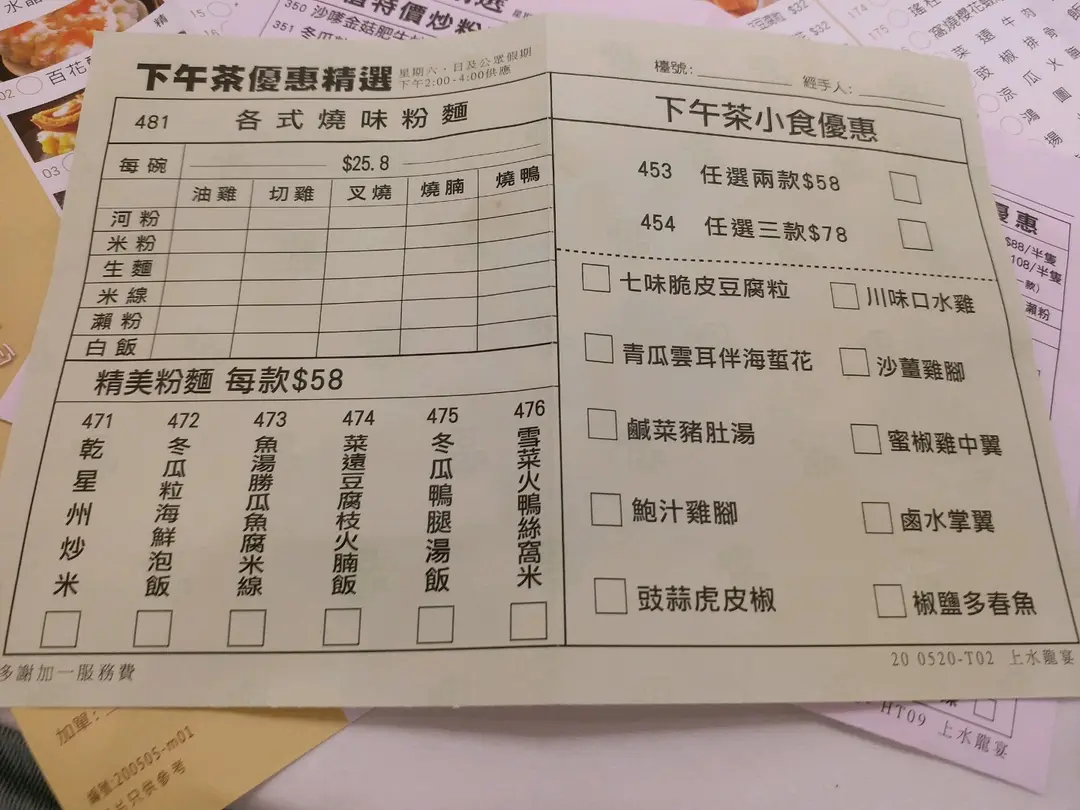 下午茶優惠精選
星期六、日及公眾假期
下午2:00-4:00供應
481 各式燒味粉麵
每碗 $25.8
油雞 切雞 叉燒 燒腩 燒鴨
河粉
米粉
生麵
米線
瀨粉
白飯
精美粉麵 每款$58
471 乾星州炒米
472 冬瓜粒海鮮泡飯
473 魚湯勝瓜魚腐米線
474 菜遠豆腐枝火腩飯
475 冬瓜鴨腿湯飯
476 雪菜火鴨絲窩米
多謝加一服務費
檯號: 經手人:
下午茶小食優惠
453 任選兩款$58
454 任選三款$78
七味脆皮豆腐粒
川味口水雞
青瓜雲耳伴海蜇花
沙薑雞腳
鹹菜豬肚湯
蜜椒雞中翼
鮑汁雞腳
鹵水掌翼
豉蒜虎皮椒
椒鹽多春魚
20 0520-T02 上水龍宴
加單:
編號:200505-m01
HT09 上水龍宴
350 沙嗲金菇肥牛
351 冬瓜
特價炒粉
百花
03
$32
174
175
窩燒櫻花
菜遠牛肉
豉椒排骨
涼瓜
$88/半隻
108/半隻
瀨粉